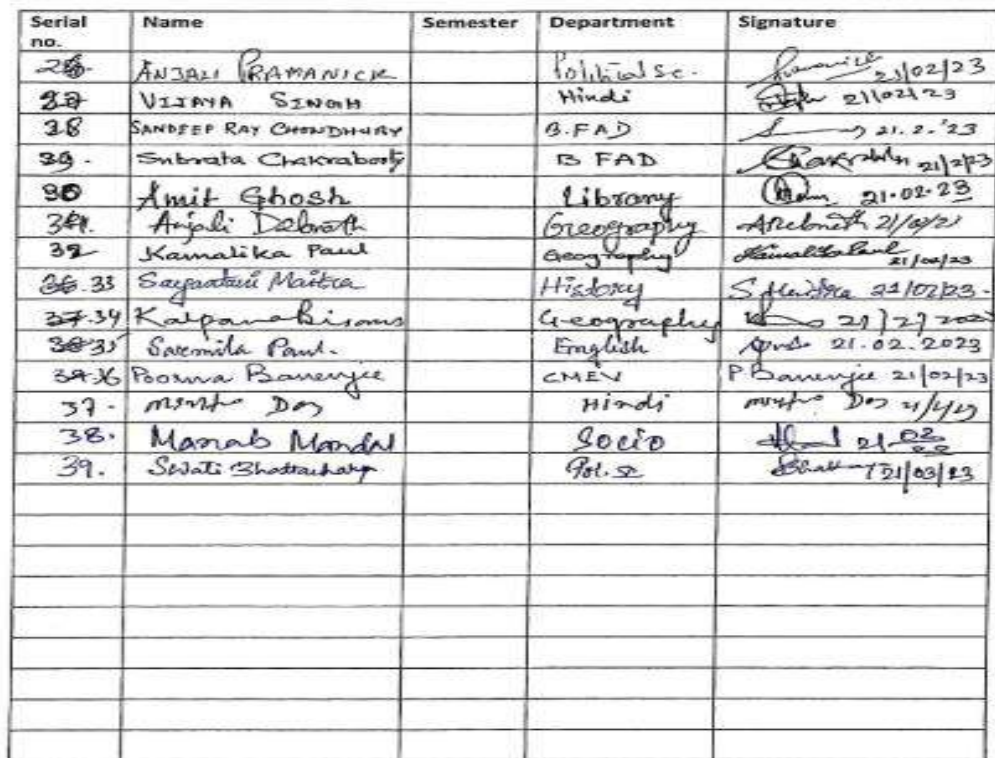 Serial no. Name Semester Department Signature
26. ANJALI PRAMANICK Political Sc. 21/02/23
27 VIJAYA SINGH Hindi 21/02/23
28 SANDEEP RAY CHOWDHURY B.FAD 21.2.'23
39. Subrata Chakraborty B FAD 21/2/23
30 Amit Ghosh Library 21.02.23
31. Anjali Debnath Geography ADebnath
32 Kamalika Paul Geography Kamalika Paul 21/02/23
33 Sayantani Maitra History S Maitra 21/02/23.
34 Kalpana Biswas Geography
35 Saremila Paul. English 21.02.2023
36 Poorva Banerjee CMEV P. Banerjee 21/02/23
37. Das Hindi Das
38. Manab Mondal Socio 21 02
39. Swati Bhattacharya Pol. Sc 21/03/23